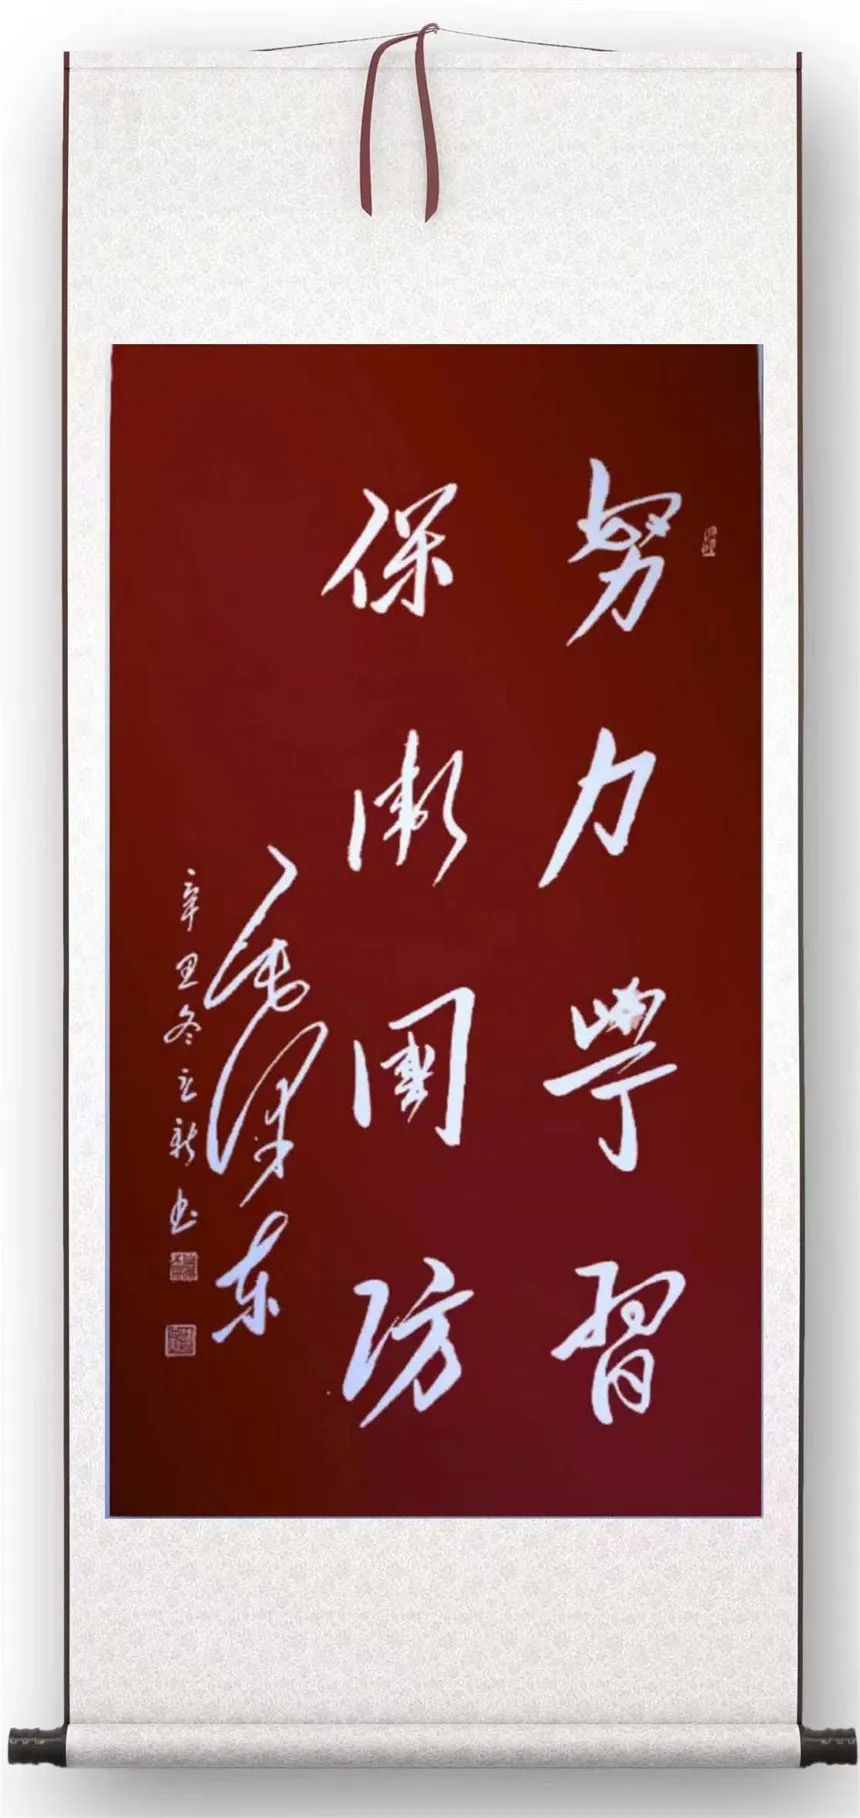 努力學習
保衛國防
毛澤东
辛丑冬立新书